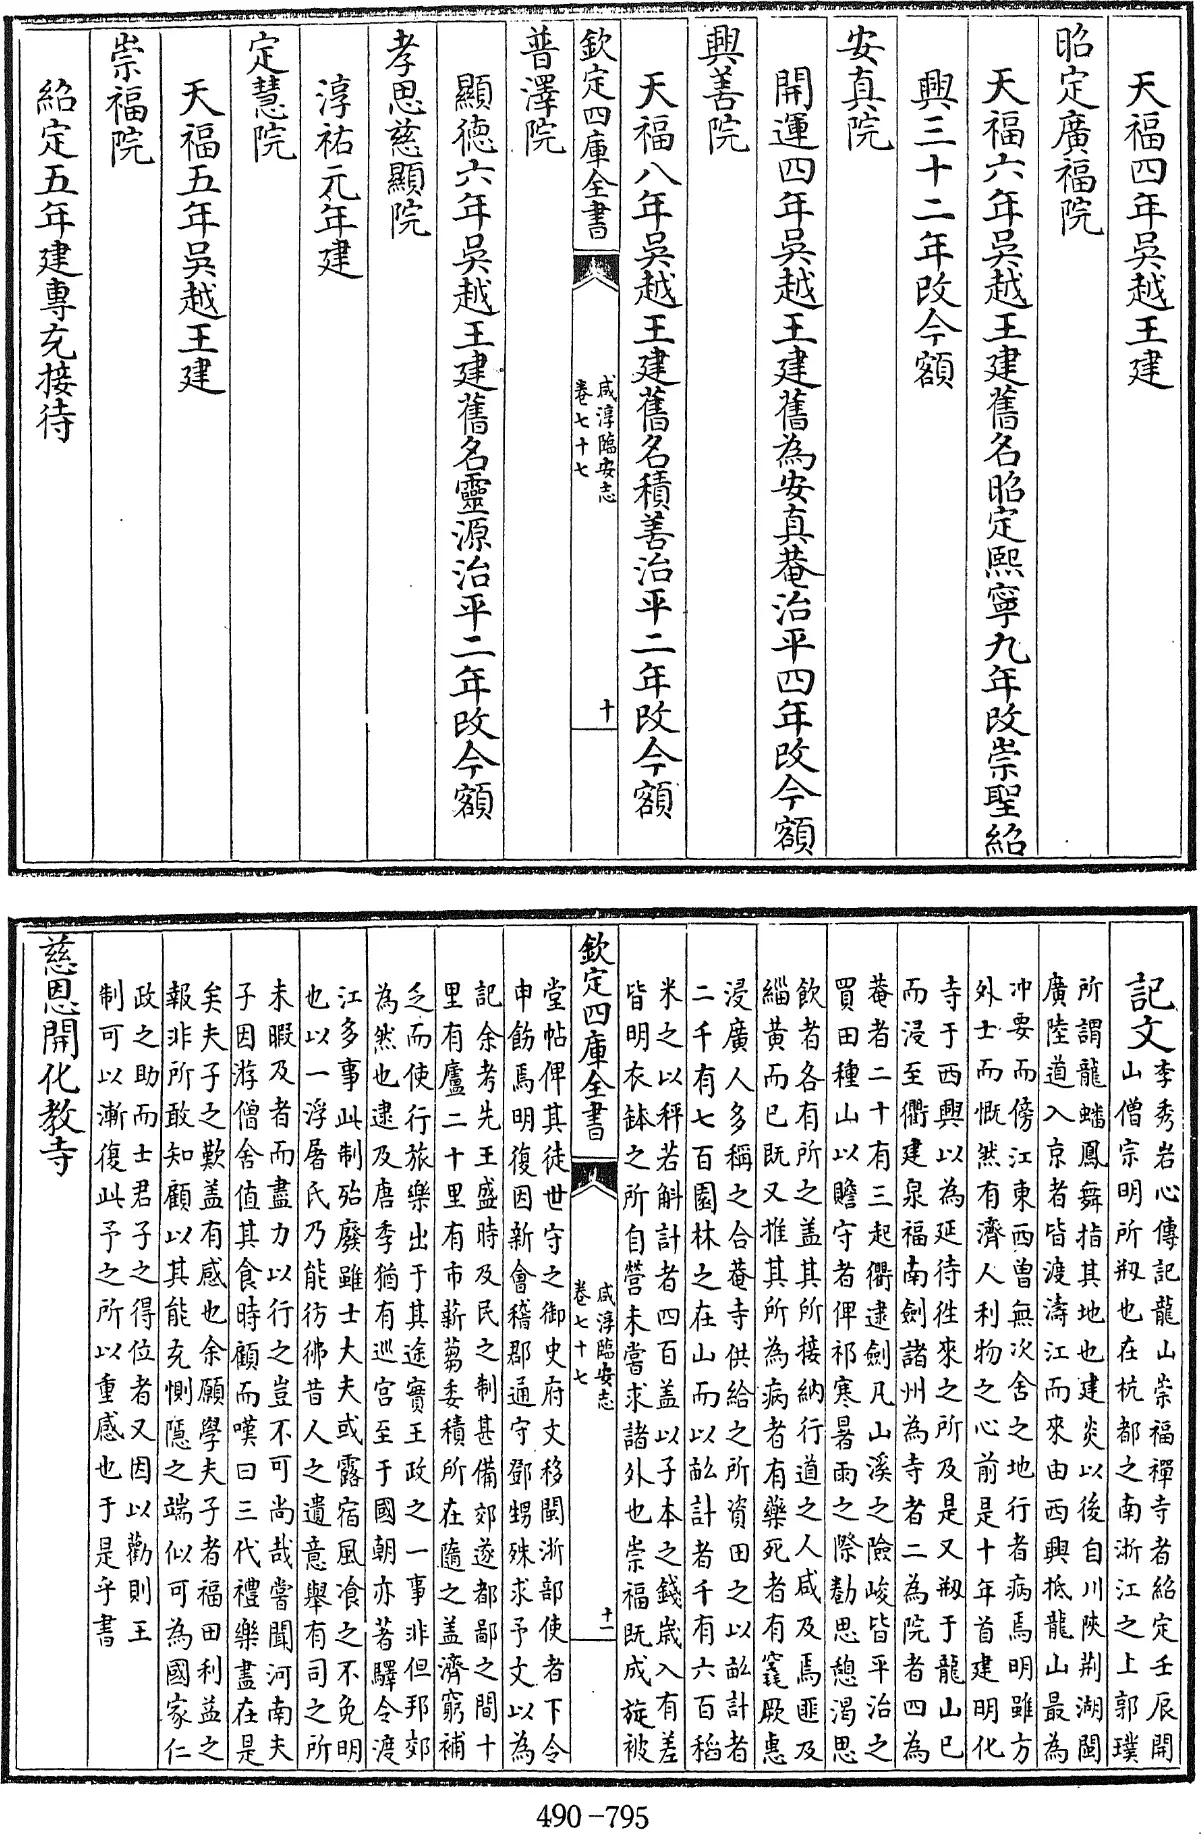 天福四年吳越王建
昭定廣福院
天福六年吳越王建舊名昭定熙寧九年改崇聖紹
興三十二年改今額
安真院
開運四年吳越王建舊為安真菴治平四年改今額
興善院
天福八年吳越王建舊名積善治平二年改今額
欽定四庫全書
咸淳臨安志
卷七十七
十
普澤院
顯徳六年吳越王建舊名靈源治平二年改今額
孝思慈顯院
淳祐元年建
定慧院
天福五年吳越王建
崇福院
紹定五年建專充接待
記文
李秀岩心傳記龍山崇福禪寺者紹定壬辰開
山僧宗明所剏也在杭都之南浙江之上郭璞
所謂龍蟠鳳舞指其地也建炎以後自川陜荆湖閩
廣陸道入京者皆渡濤江而來由西興抵龍山最為
沖要而傍江東西曽無次舍之地行者病焉明雖方
外士而慨然有濟人利物之心前是十年首建明化
寺于西興以為延待徃來之所及是又剏于龍山已
而浸至衢建泉福南劍諸州為寺者二為院者四為
菴者二十有三起衢逮劍凡山溪之險峻皆平治之
買田種山以贍守者俾祁寒暑雨之際勸思憩渴思
飲者各有所之盖其所接納行道之人咸及焉匪及
緇黄而已既又推其所為病者有藥死者有窾厥惠
浸廣人多稱之合菴寺供給之所資田之以畝計者
二千有七百園林之在山而以畝計者千有六百稻
米之以秤若斛計者四百盖以子本之錢歳入有差
皆明衣鉢之所自營未嘗求諸外也崇福既成旋被
欽定四庫全書
咸淳臨安志
卷七十七
十一
堂帖俾其徒世守之御史府文移閩浙部使者下令
申飭焉明復因新會稽郡通守鄧甥殊求予文以為
記余考先王盛時及民之制甚備郊遂都鄙之間十
里有廬二十里有市薪蒭委積所在隨之盖濟窮補
乏而使行旅樂出于其途實王政之一事非但邦郊
為然也逮及唐季猶有巡宫至于國朝亦著驛令渡
江多事此制殆廢雖士大夫或露宿風飡之不免明
也以一浮屠氏乃能彷彿昔人之遺意舉有司之所
未暇及者而盡力以行之豈不可尚哉嘗聞河南夫
子因游僧舍值其食時顧而嘆曰三代禮樂盡在是
矣夫子之歎盖有感也余願學夫子者福田利益之
報非所敢知顧以其能充惻隱之端似可為國家仁
政之助而士君子之得位者又因以勸則王
制可以漸復此予之所以重感也于是乎書
慈恩開化教寺
490-795